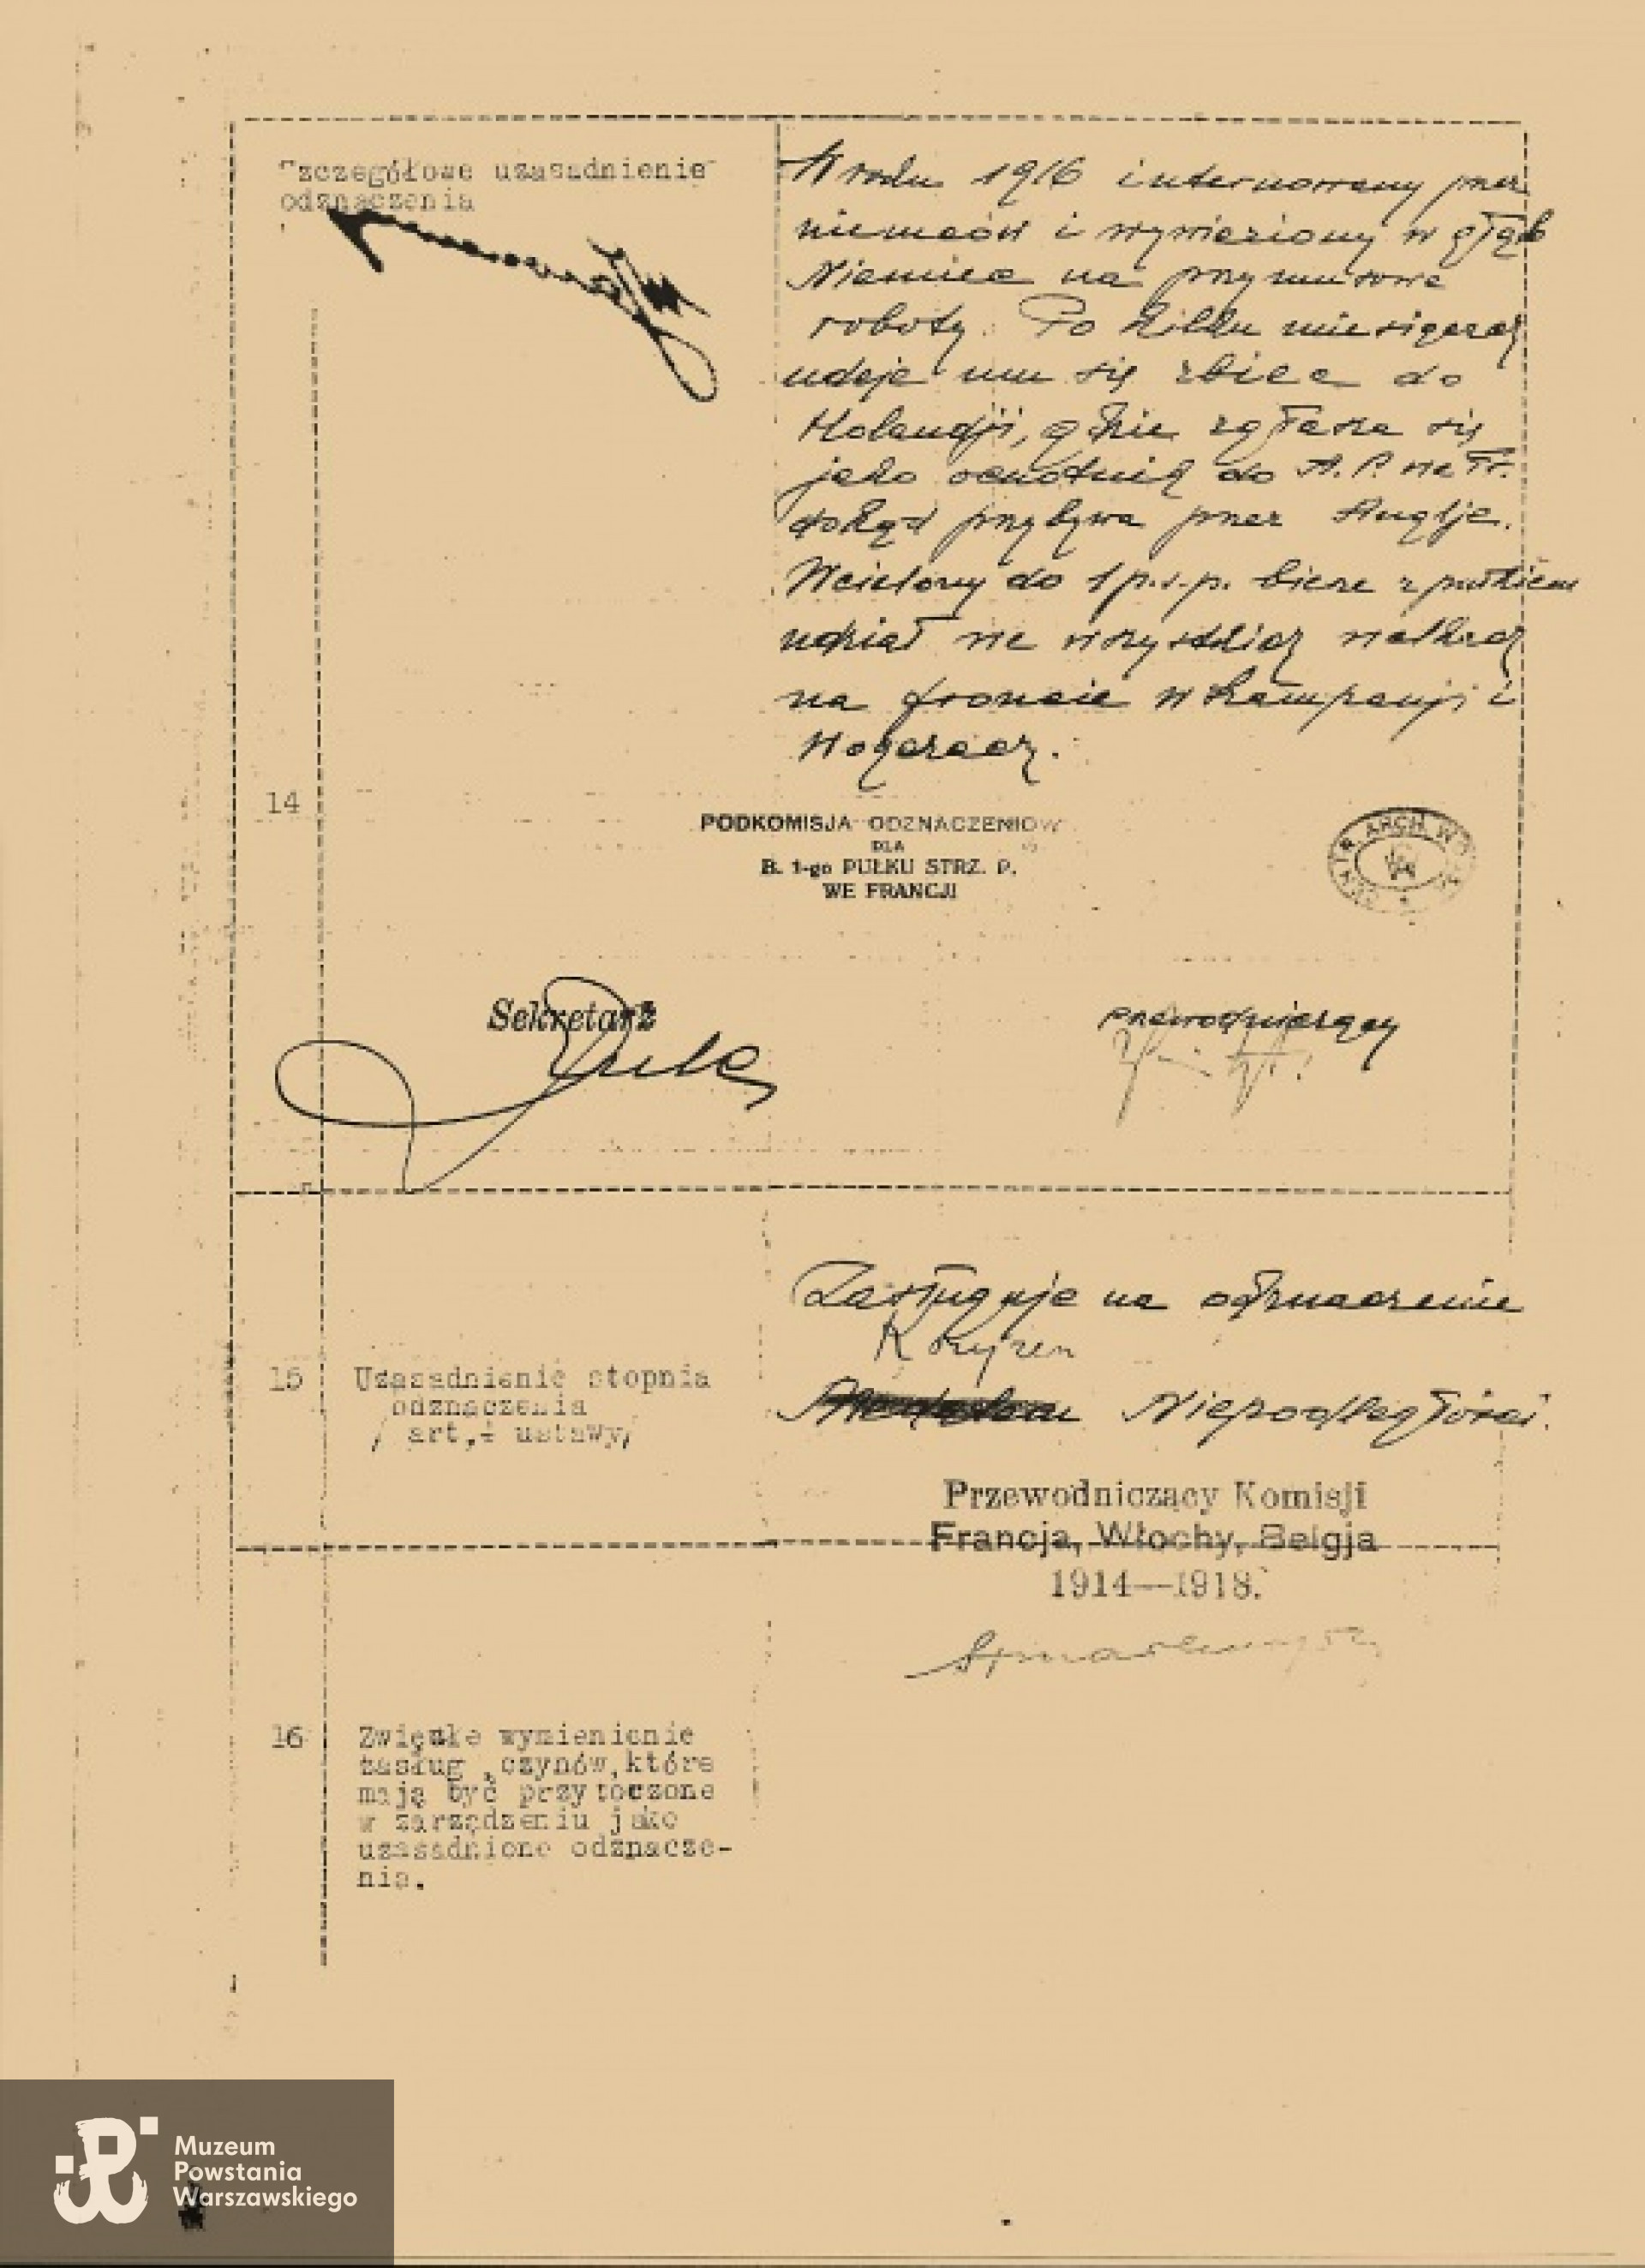 Szczegółowe uzasadnienie
odznaczenia
W roku 1916 internowany przez
niemców i wywieziony w głąb
Niemiec na przymusowe
roboty. Po kilku miesiącach
udaje mu się zbiec do
Holandji, gdzie zgłasza się
jako ochotnik do A. P. we Fr.
dokąd przybywa przez Anglję.
Wcielony do 1 p.s.p. bierze z pułkiem
udział we wszystkich walkach
na froncie w Szampanji i
Wogezach.
14
PODKOMISJA ODZNACZENIOW
DLA
B. 1-go PUŁKU STRZ. P.
WE FRANCJI
ARCH. W
Sekretarz
przewodniczący
Zasługuje na odznaczenie
Krzyżem
15
Uzasadnienie stopnia
odznaczenia
/ art, 4 ustawy/
Niepodległości.
Przewodniczący Komisji
Francja, Włochy, Belgja
1914—1918.
16
Zwięzłe wymienienie
zasług, czynów, które
mają być przytoczone
w zarządzeniu jako
uzasadnione odznacze-
nia.
Muzeum
Powstania
Warszawskiego